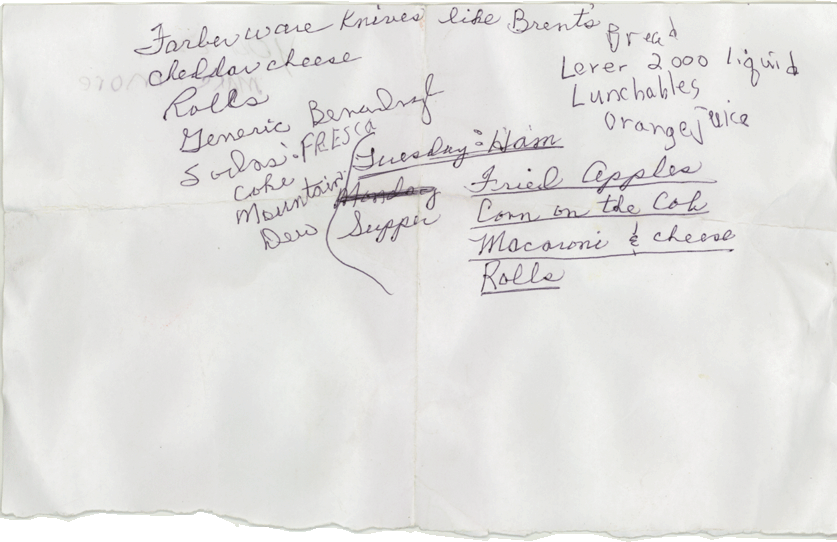 Farberware Knives like Brent's
cheddar cheese
Rolls
Generic Benadryl
Sodas: FRESCA
Coke
Mountain
Dew
Bread
Lever 2000 liquid
Lunchables
Orange juice
Tuesday: Ham
Monday
Supper
Fried Apples
Corn on the Cob
Macaroni & cheese
Rolls